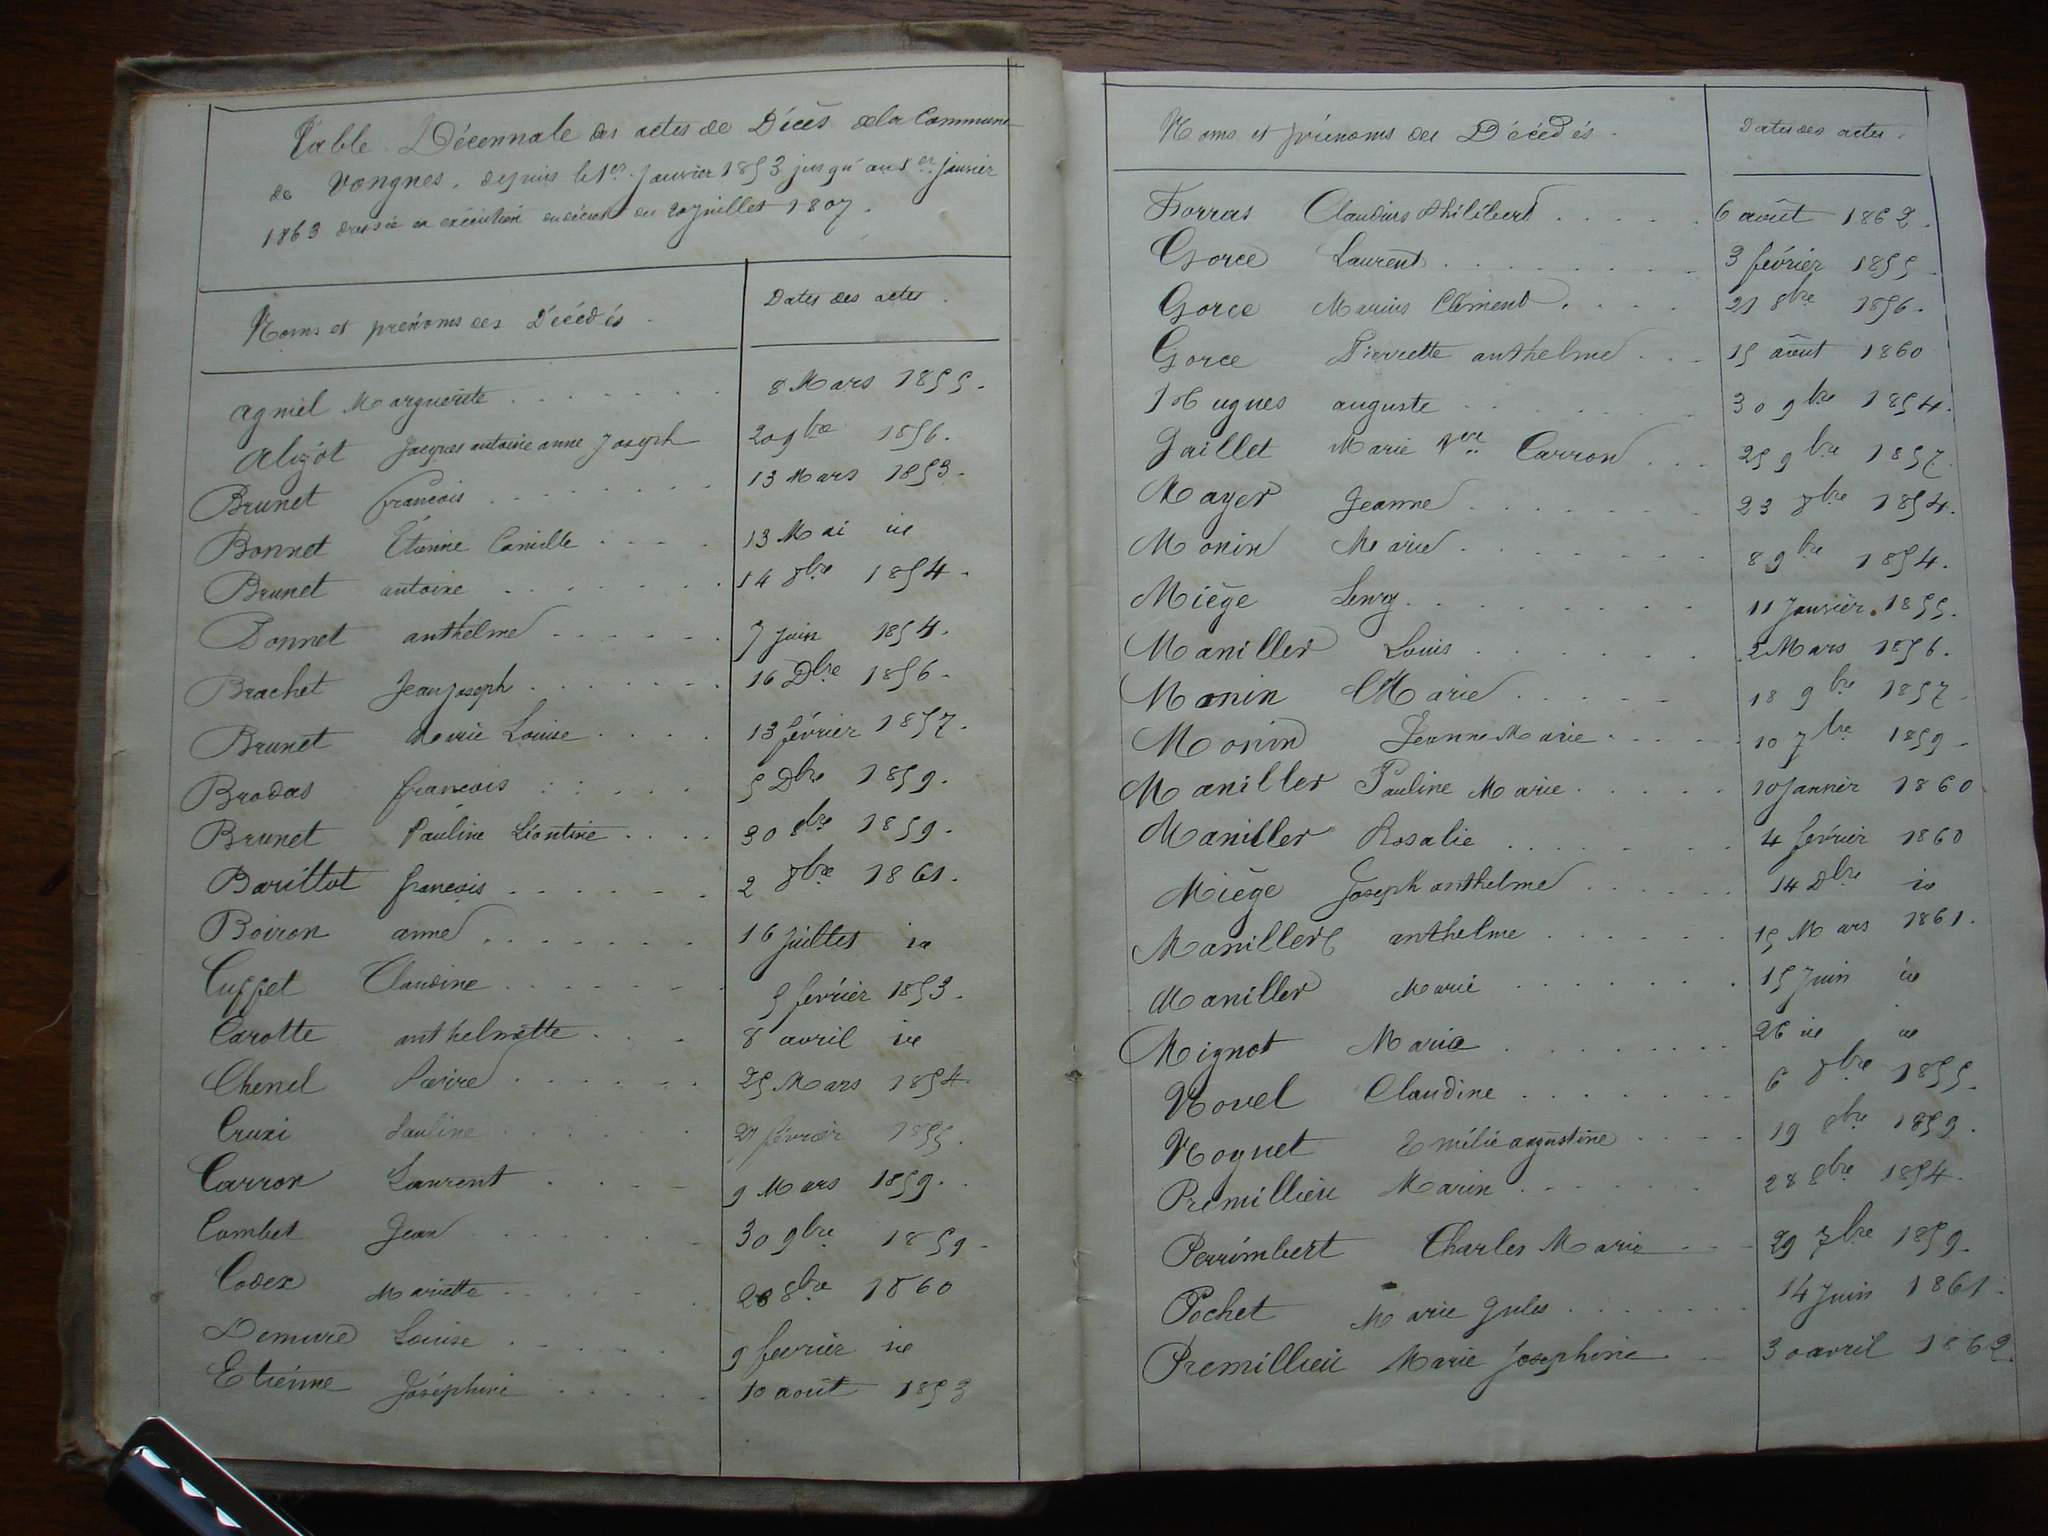 Table Décennale des actes de Décès de la Commune
de Vongnes, depuis le 1er Janvier 1853 jusqu'au 1er janvier
1863 dressée en exécution du décret du 20 juillet 1807.
Noms et prénoms des Décédés. Dates des actes.
Agniel Marguerite 8 Mars 1855.
Alizot Jacques antoine anne Joseph 20 9bre 1856.
Brunet françois 13 Mars 1853.
Bonnet Étienne Camille 13 Mai id
Brunet antoine 14 8bre 1854.
Bonnet anthelme 7 Juin 1854.
Brachet Jean joseph 16 Dbre 1856.
Brunet Marie Louise 13 février 1857.
Brodas françois 5 Dbre 1859.
Brunet Pauline Léontine 30 8bre 1859.
Barillot françois 2 8bre 1861.
Boiron anne 16 juillet id
Cuffet Claudine 5 fevrier 1853.
Carotte anthelmette 8 avril id
Chenel 25 Mars 1854.
Cruxi Pauline février 1855.
Carron Laurent 9 Mars 1859.
Combet Jean 30 9bre 1859.
Codex Mariette 8bre 1860
Demure Louise 9 fevrier id
Etienne Joséphine 10 août 1853
Noms et prénoms des Décédés. Dates des actes.
Forras Claudius Philibert 6 août 1862.
Gorce Laurent 3 février 1855.
Gorce Marius Clément 21 8bre 1856.
Gorce Pierrette anthelme 15 août 1860
Hugues auguste 30 9bre 1854.
Jaillet Marie Vve Carron 25 9bre 1857.
Mayer Jeanne 23 8bre 1854.
Monin Marie 8 9bre 1854.
Miège Henry 11 Janvier 1855.
Maniller Louis 2 Mars 1856.
Monin Marie 18 9bre 1857.
Monin Jeanne Marie 10 7bre 1859.
Maniller Pauline Marie 10 Janvier 1860
Maniller Rosalie 4 février 1860
Miège Joseph anthelme 14 Dbre id
Maniller anthelme 15 Mars 1861.
Maniller Marie 15 Juin id
Mignot Marie 26 id id
Novel Claudine 6 8bre 1855.
Noguet Emélie augustine 19 8bre 1859.
Premillieu Marin 28 8bre 1854.
Perrimbert Charles Marie 29 7bre 1859.
Pochet Marie Jules 14 Juin 1861.
Premillieu Marie Josephine 30 avril 1862.